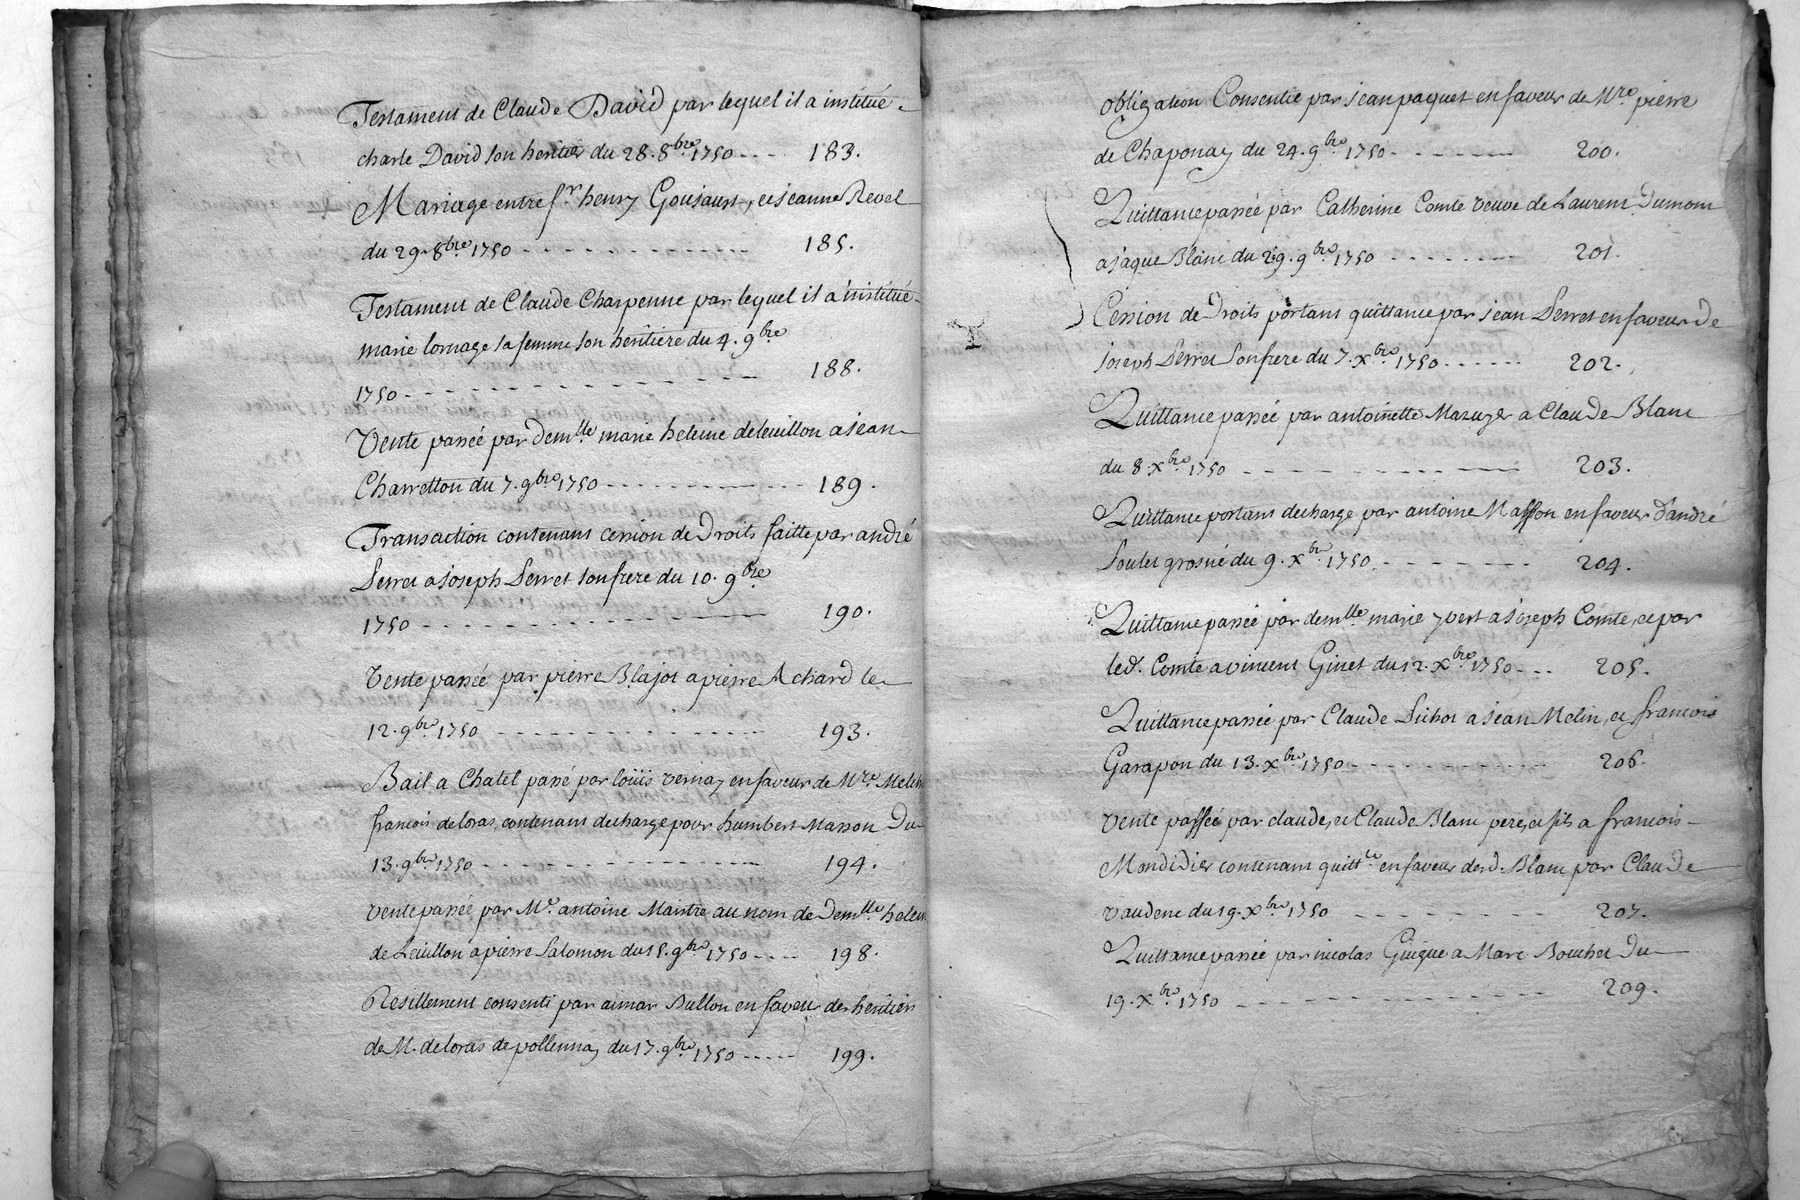 Testament de Claude David par lequel il a institué
charle David son heritier du 28. 8bre. 1750 --- 183.
Mariage entre sr. henry Goujaust, et jeanne Revel
du 29. 8bre. 1750 --- 185.
Testament de Claude Charpenne par lequel il a institué
marie lornage sa femme son heritiere du 4. 9bre
1750 --- 188.
Vente passée par demlle. marie heleine deleuillon a jean
Charretton du 7. 9bre 1750 --- 189.
Transaction contenant cession de Droits faitte par andré
Serret a joseph Serret son frere du 10. 9bre
1750 --- 190.
Vente passée par pierre Blajot a pierre Achard le
12. 9bre. 1750 --- 193.
Bail a Chatel passé par loüis vernay en faveur de Mre. Melch
francois deloras, contenant decharge pour humbert Masson Du
13. 9bre. 1750 --- 194.
vente passée par Me. antoine Maistre au nom de Demlle. helein
de Leuillon a pierre Salomon du 15. 9bre. 1750 --- 198.
Resillement consenti par aimar Bullon en faveur des heritiers
de M. deloras de pollennay du 17. 9bre. 1750 --- 199.
obligation Consentie par jean paquet en faveur de Mre. pierre
de Chaponay du 24. 9bre. 1750 --- 200.
Quittance passée par Catherine Comte veuve de Laurent Dumont
a jaque Blanc du 29. 9bre. 1750 --- 201.
Cession de Droits portant quittance par jean Serret en faveur de
joseph Serret son frere du 7. Xbre. 1750 --- 202.
Quittance passée par antoinette Mazuyer a Claude Blanc
du 8. Xbre. 1750 --- 203.
Quittance portant decharge par antoine Masson en faveur d'andré
Soulet grosné du 9. Xbre. 1750. --- 204.
Quittance passée par demlle. marie yvert a joseph Comte, et par
led. Comte a vincent Ginet du 12. Xbre. 1750 --- 205.
Quittance passée par Claude Pichot a jean Melin, et francois
Garapon du 13. Xbre. 1750 --- 206.
Vente passée par claude, et Claude Blanc pere, et fils a francois
Mondidier contenant quittce. en faveur desd. Blanc par Claude
vaudene du 19. Xbre. 1750 --- 207.
Quittance passée par nicolas Guigue a Marc Bouchet Du
19. Xbre. 1750 --- 209.